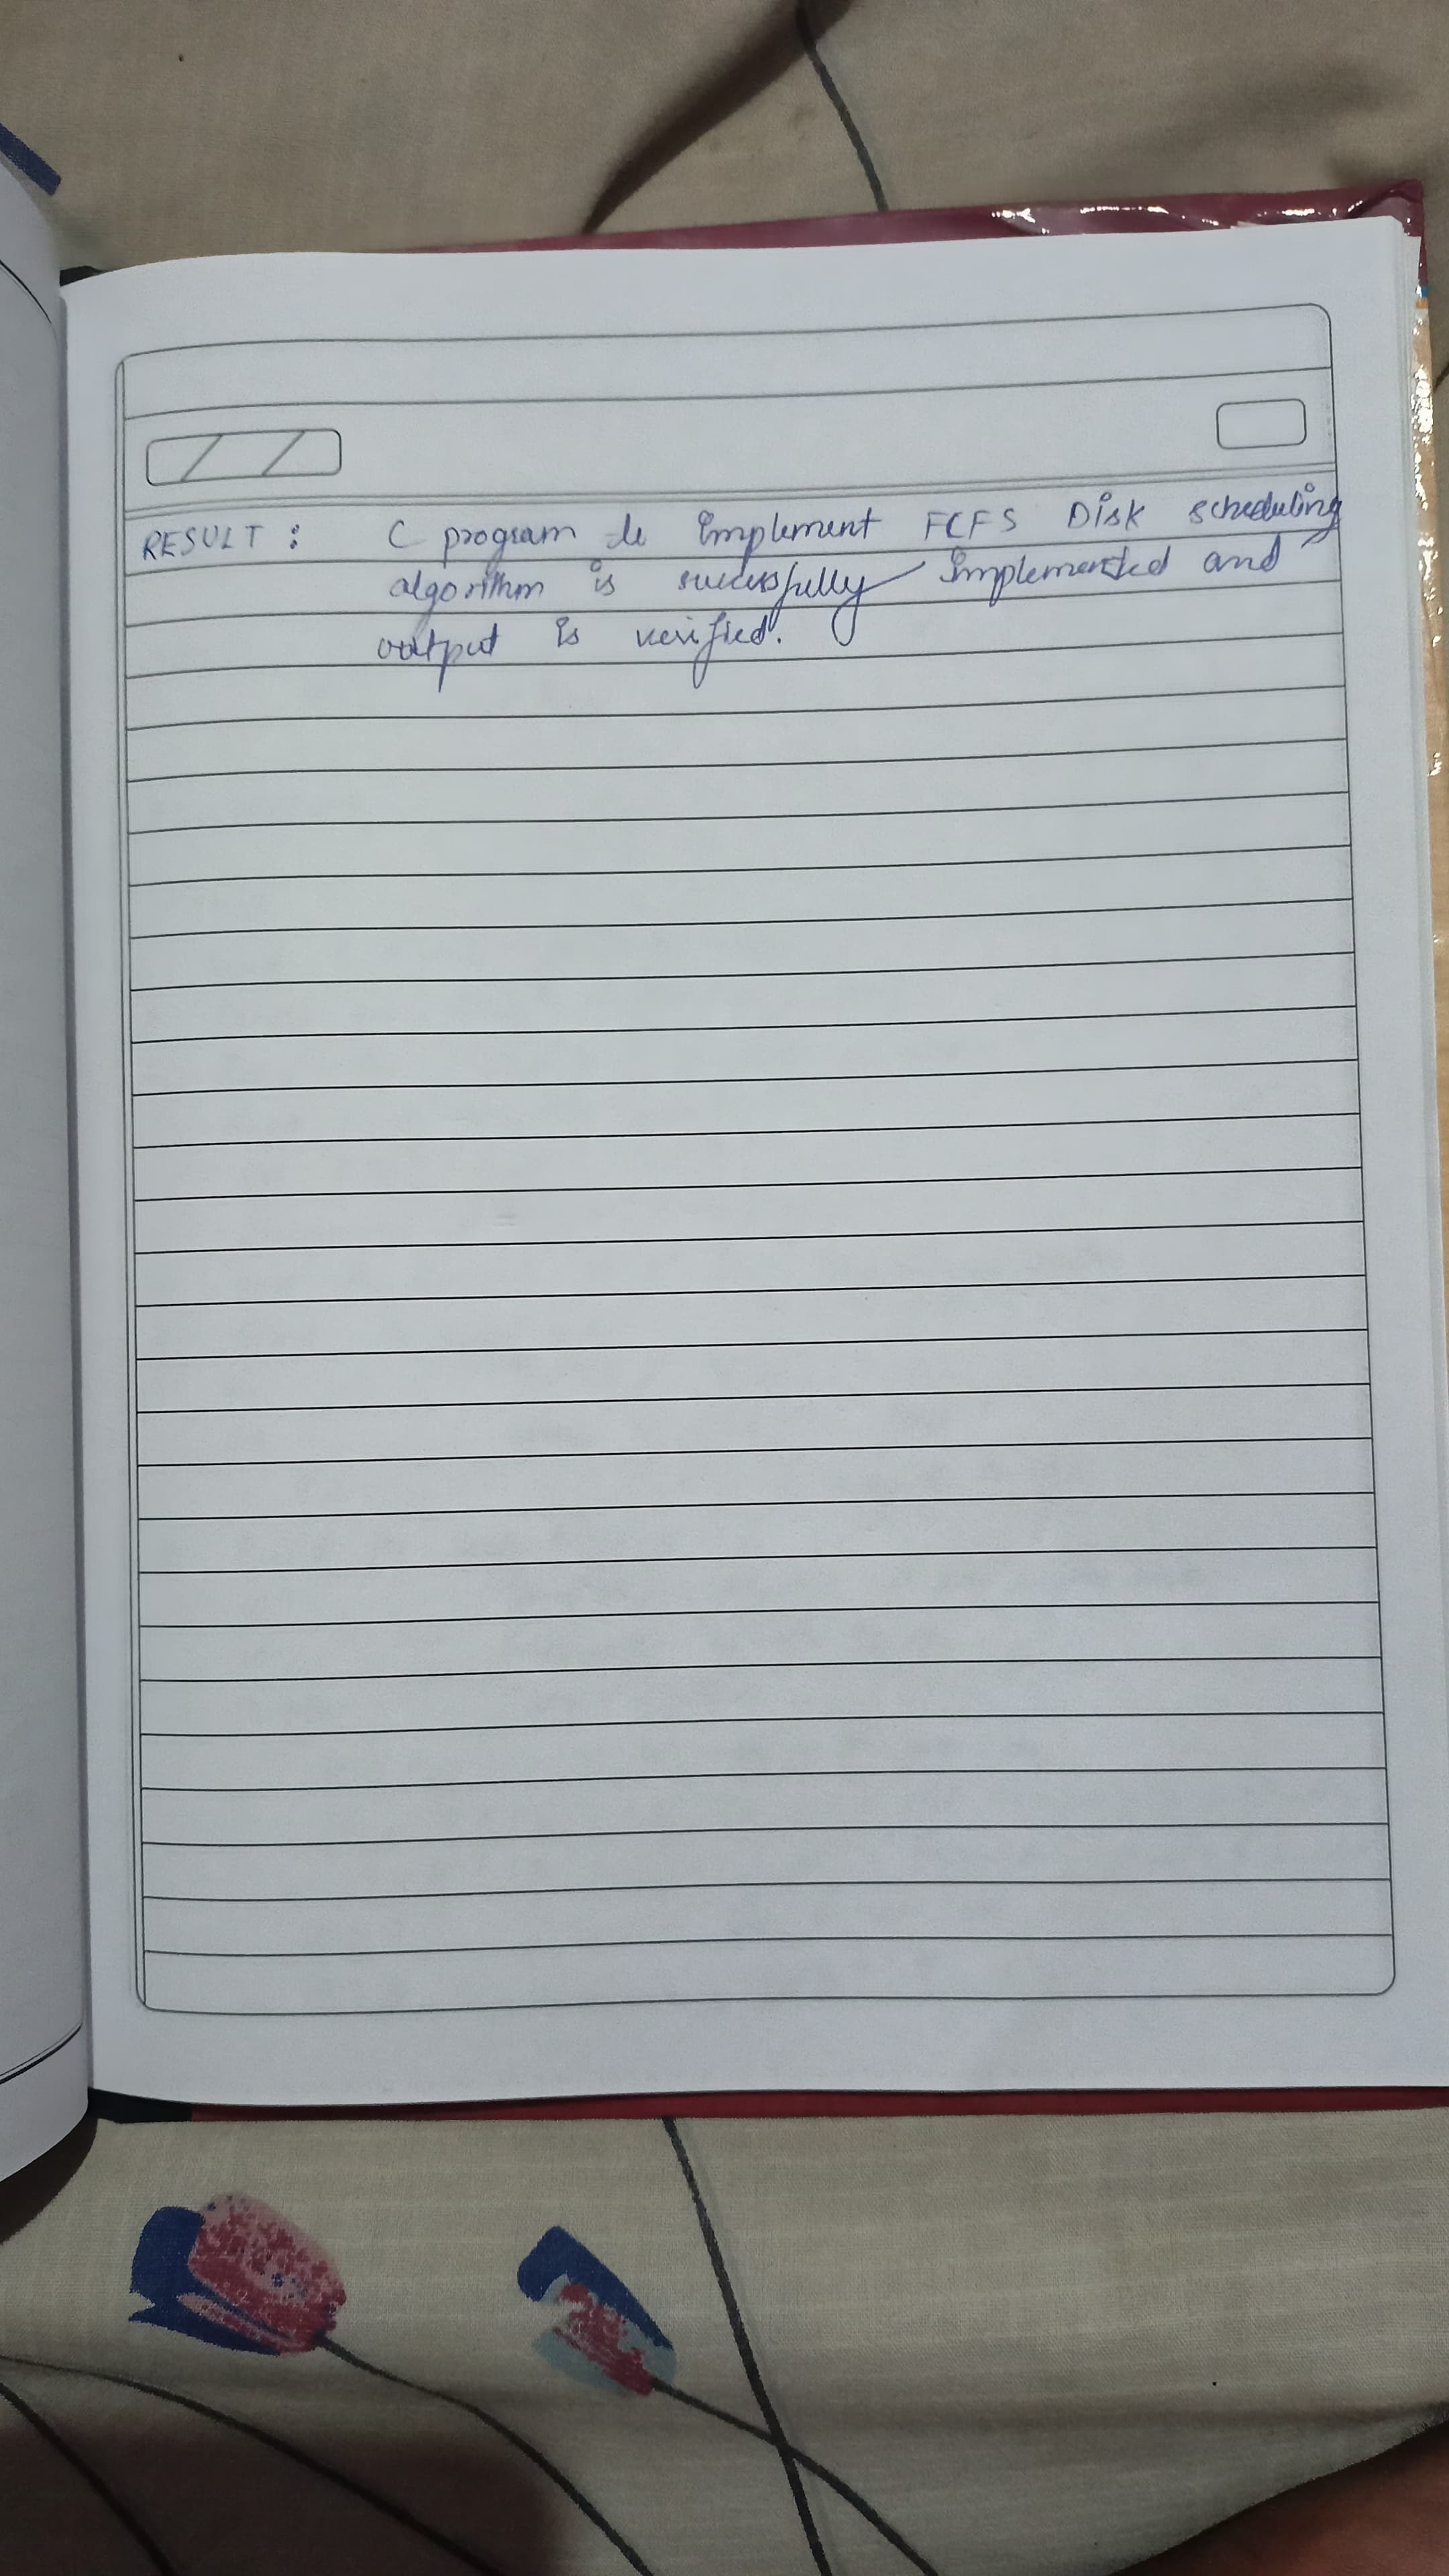 RESULT : C program to implement FCFS Disk scheduling
algorithm is successfully implemented and
output is verified.